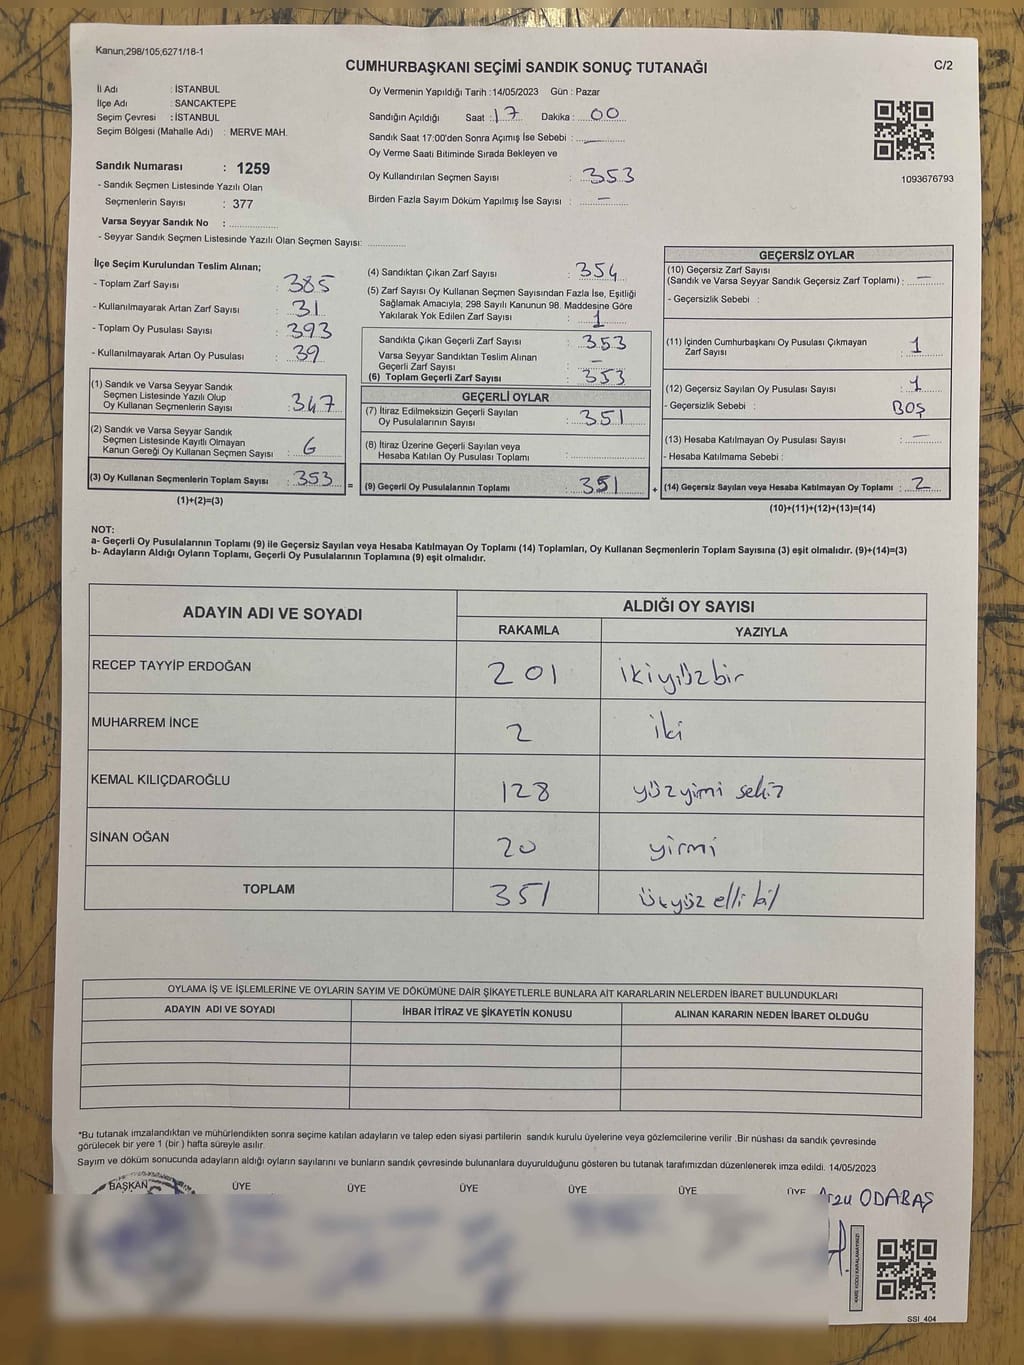 Kanun;298/105;6271/18-1
CUMHURBAŞKANI SEÇİMİ SANDIK SONUÇ TUTANAĞI
C/2
İl Adı : İSTANBUL
İlçe Adı : SANCAKTEPE
Seçim Çevresi : İSTANBUL
Seçim Bölgesi (Mahalle Adı) : MERVE MAH.
Sandık Numarası : 1259
- Sandık Seçmen Listesinde Yazılı Olan
Seçmenlerin Sayısı : 377
Varsa Seyyar Sandık No :
- Seyyar Sandık Seçmen Listesinde Yazılı Olan Seçmen Sayısı:
Oy Vermenin Yapıldığı Tarih :14/05/2023 Gün : Pazar
Sandığın Açıldığı Saat : 17 Dakika : 00
Sandık Saat 17:00'den Sonra Açımış İse Sebebi : —
Oy Verme Saati Bitiminde Sırada Bekleyen ve
Oy Kullandırılan Seçmen Sayısı : 353
Birden Fazla Sayım Döküm Yapılmış İse Sayısı : —
1093676793
İlçe Seçim Kurulundan Teslim Alınan;
- Toplam Zarf Sayısı : 385
- Kullanılmayarak Artan Zarf Sayısı : 31
- Toplam Oy Pusulası Sayısı : 393
- Kullanılmayarak Artan Oy Pusulası : 39
(1) Sandık ve Varsa Seyyar Sandık
Seçmen Listesinde Yazılı Olup
Oy Kullanan Seçmenlerin Sayısı : 347
(2) Sandık ve Varsa Seyyar Sandık
Seçmen Listesinde Kayıtlı Olmayan
Kanun Gereği Oy Kullanan Seçmen Sayısı : 6
(3) Oy Kullanan Seçmenlerin Toplam Sayısı : 353
(1)+(2)=(3)
(4) Sandıktan Çıkan Zarf Sayısı : 354
(5) Zarf Sayısı Oy Kullanan Seçmen Sayısından Fazla İse, Eşitliği
Sağlamak Amacıyla; 298 Sayılı Kanunun 98. Maddesine Göre
Yakılarak Yok Edilen Zarf Sayısı : 1
Sandıkta Çıkan Geçerli Zarf Sayısı : 353
Varsa Seyyar Sandıktan Teslim Alınan
Geçerli Zarf Sayısı : —
(6) Toplam Geçerli Zarf Sayısı : 353
GEÇERLİ OYLAR
(7) İtiraz Edilmeksizin Geçerli Sayılan
Oy Pusulalarının Sayısı : 351
(8) İtiraz Üzerine Geçerli Sayılan veya
Hesaba Katılan Oy Pusulası Toplamı :
= (9) Geçerli Oy Pusulalarının Toplamı : 351
GEÇERSİZ OYLAR
(10) Geçersiz Zarf Sayısı
(Sandık ve Varsa Seyyar Sandık Geçersiz Zarf Toplamı) : —
- Geçersizlik Sebebi :
(11) İçinden Cumhurbaşkanı Oy Pusulası Çıkmayan
Zarf Sayısı : 1
(12) Geçersiz Sayılan Oy Pusulası Sayısı : 1
- Geçersizlik Sebebi : BOŞ
(13) Hesaba Katılmayan Oy Pusulası Sayısı : —
- Hesaba Katılmama Sebebi :
+ (14) Geçersiz Sayılan veya Hesaba Katılmayan Oy Toplamı : 2
(10)+(11)+(12)+(13)=(14)
NOT:
a- Geçerli Oy Pusulalarının Toplamı (9) ile Geçersiz Sayılan veya Hesaba Katılmayan Oy Toplamı (14) Toplamları, Oy Kullanan Seçmenlerin Toplam Sayısına (3) eşit olmalıdır. (9)+(14)=(3)
b- Adayların Aldığı Oyların Toplamı, Geçerli Oy Pusulalarının Toplamına (9) eşit olmalıdır.
ADAYIN ADI VE SOYADI ALDIĞI OY SAYISI
RAKAMLA YAZIYLA
RECEP TAYYİP ERDOĞAN 201 ikiyüzbir
MUHARREM İNCE 2 iki
KEMAL KILIÇDAROĞLU 128 yüzyimi sekiz
SİNAN OĞAN 20 yirmi
TOPLAM 351 üçyüz elli bir
OYLAMA İŞ VE İŞLEMLERİNE VE OYLARIN SAYIM VE DÖKÜMÜNE DAİR ŞİKAYETLERLE BUNLARA AİT KARARLARIN NELERDEN İBARET BULUNDUKLARI
ADAYIN ADI VE SOYADI İHBAR İTİRAZ VE ŞİKAYETİN KONUSU ALINAN KARARIN NEDEN İBARET OLDUĞU
*Bu tutanak imzalandıktan ve mühürlendikten sonra seçime katılan adayların ve talep eden siyasi partilerin sandık kurulu üyelerine veya gözlemcilerine verilir .Bir nüshası da sandık çevresinde
görülecek bir yere 1 (bir ) hafta süreyle asılır.
Sayım ve döküm sonucunda adayların aldığı oyların sayılarını ve bunların sandık çevresinde bulunanlara duyurulduğunu gösteren bu tutanak tarafımızdan düzenlenerek imza edildi. 14/05/2023
BAŞKAN ÜYE ÜYE ÜYE ÜYE ÜYE ÜYE
Arzu ODABAŞ
SSI_404